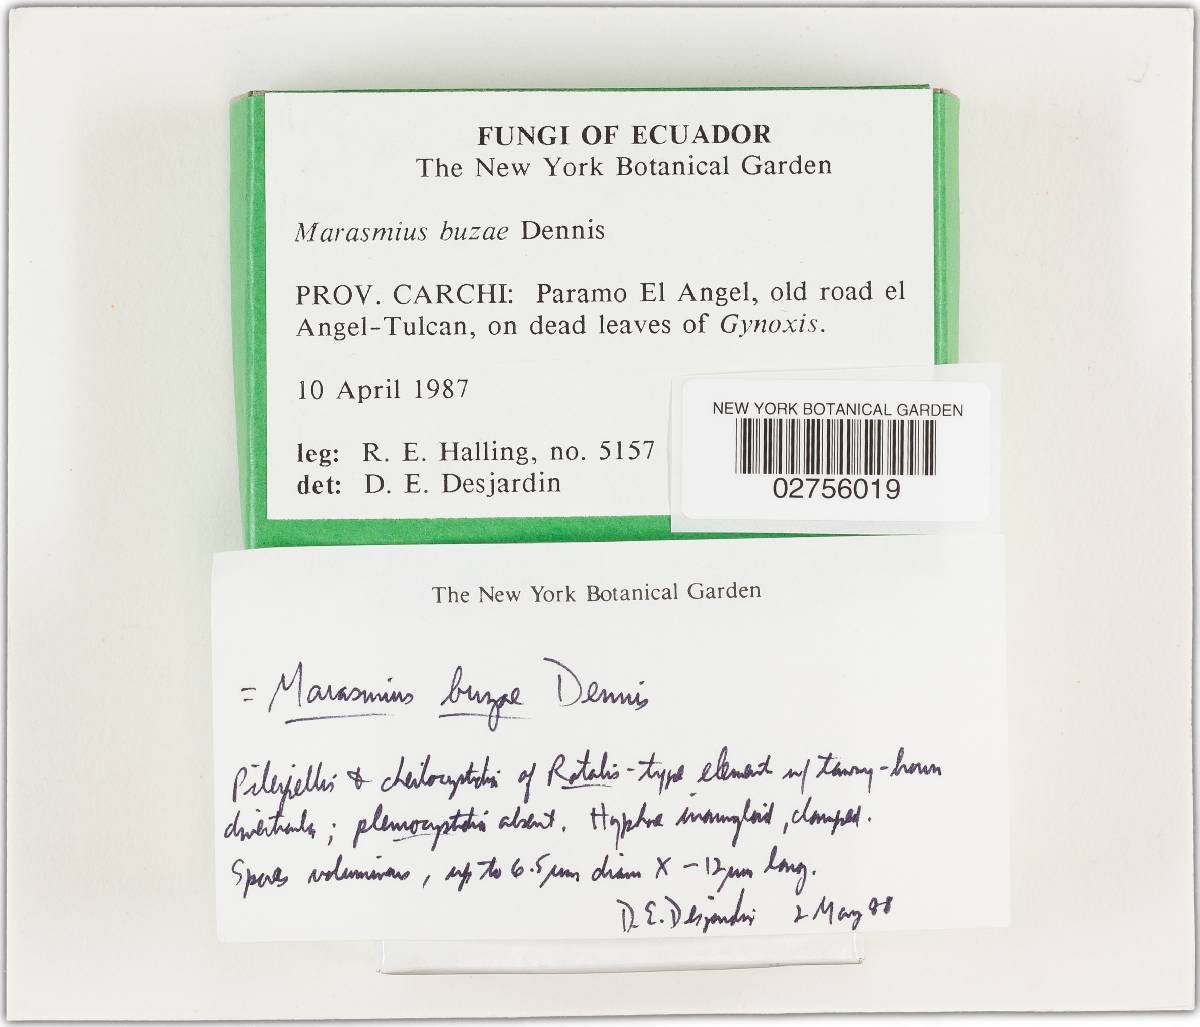 FUNGI OF ECUADOR
The New York Botanical Garden
Marasmius buzae Dennis
PROV. CARCHI: Paramo El Angel, old road el
Angel-Tulcan, on dead leaves of Gynoxis.
10 April 1987
leg: R. E. Halling, no. 5157
det: D. E. Desjardin
NEW YORK BOTANICAL GARDEN
02756019
The New York Botanical Garden
= Marasmius buzae Dennis
Pileipellis & cheilocystidia of Rotalis-type element w/ tawny-brown
diverticula; pleurocystidia absent. Hyphae inamyloid, clamped.
Spores voluminous, up to 6.5 µm diam X -12 µm long.
D.E. Desjardin 2 May 88